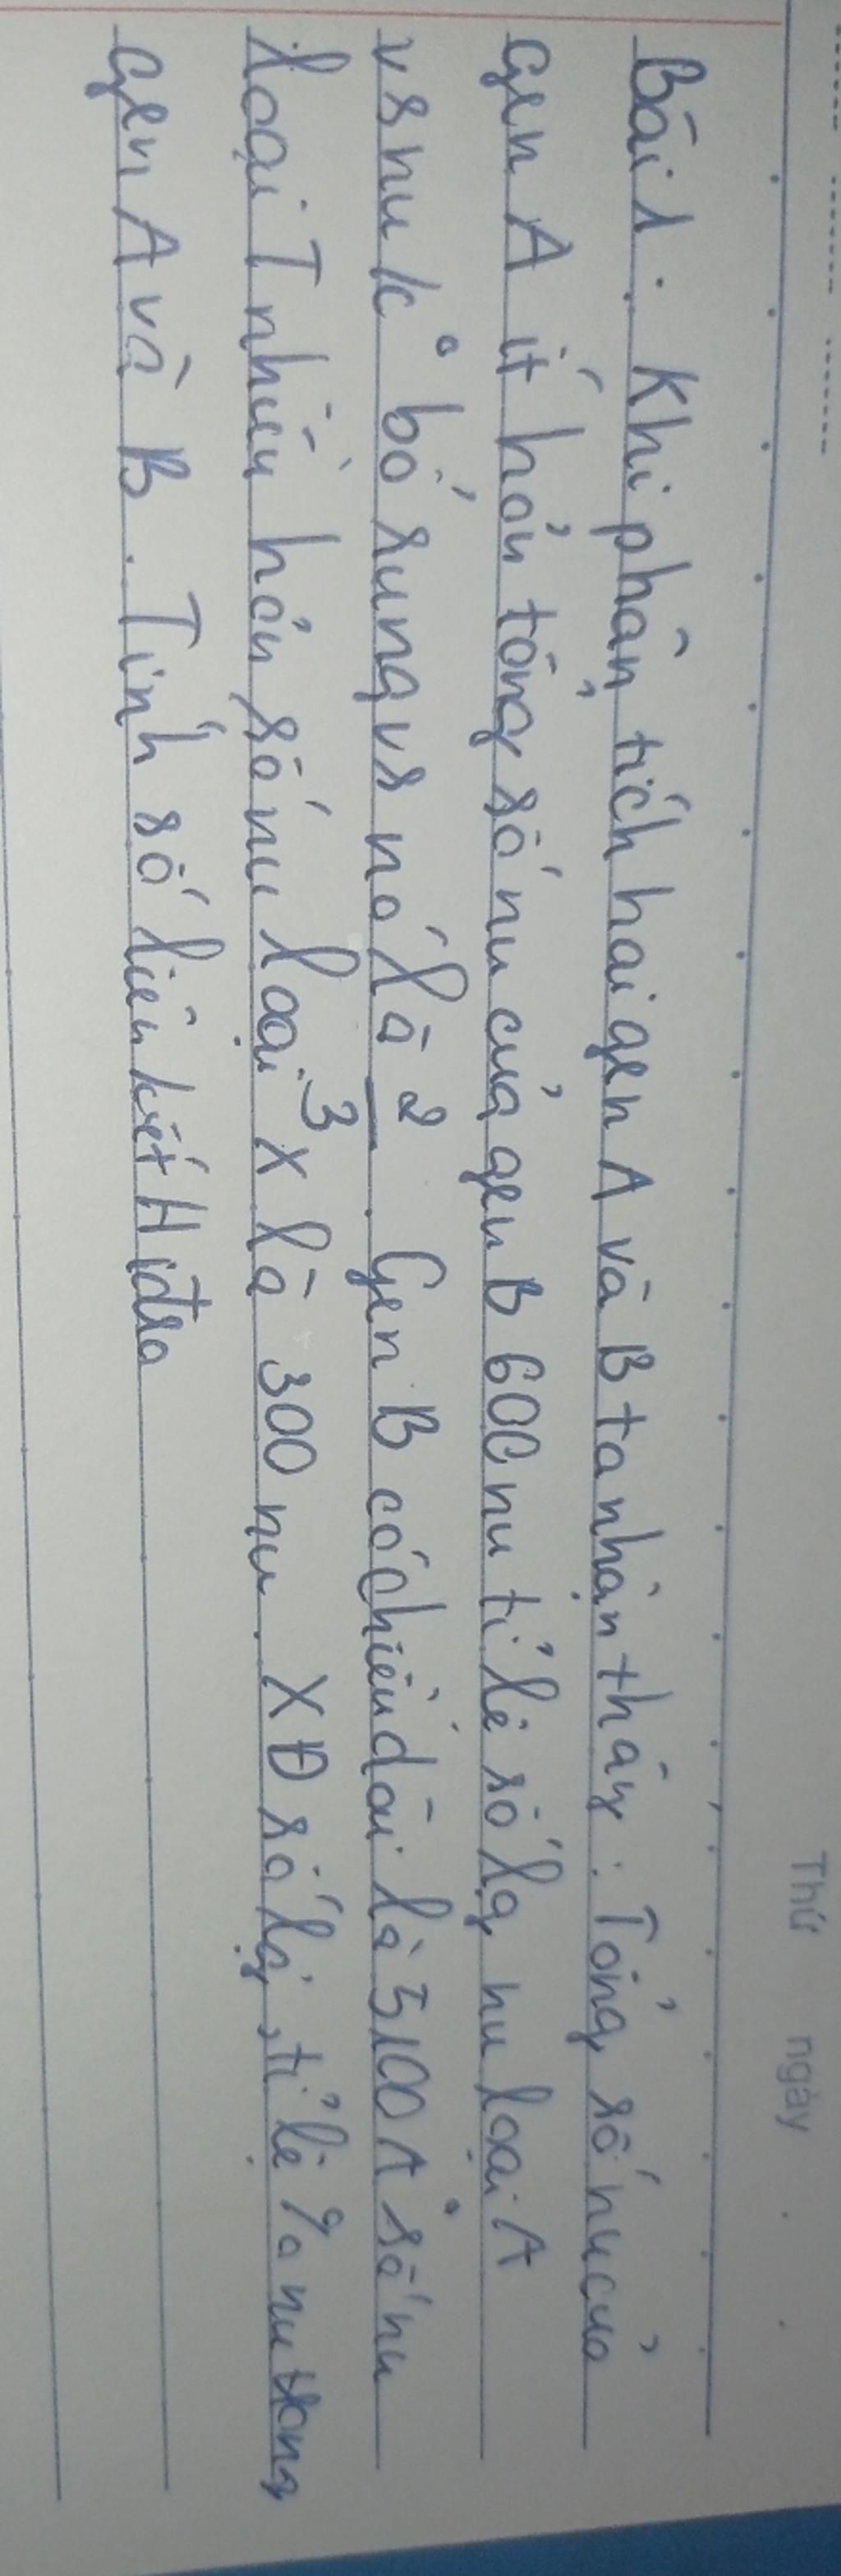 Thứ ngày
Bài 1: Khi phân tích hai gen A và B ta nhận thấy: Tổng số nu của
gen A ít hơn tổng số nu của gen B 600 nu tỉ lệ số lg nu loại A
vs nu k° bổ sung vs nó là 2/3. Gen B có chiều dài là 5100 A° số nu
loại T nhiều hơn số nu loại X là 300 nu. XĐ số lg, tỉ lệ % nu trong
gen A và B. Tính số liên kết Hiđro